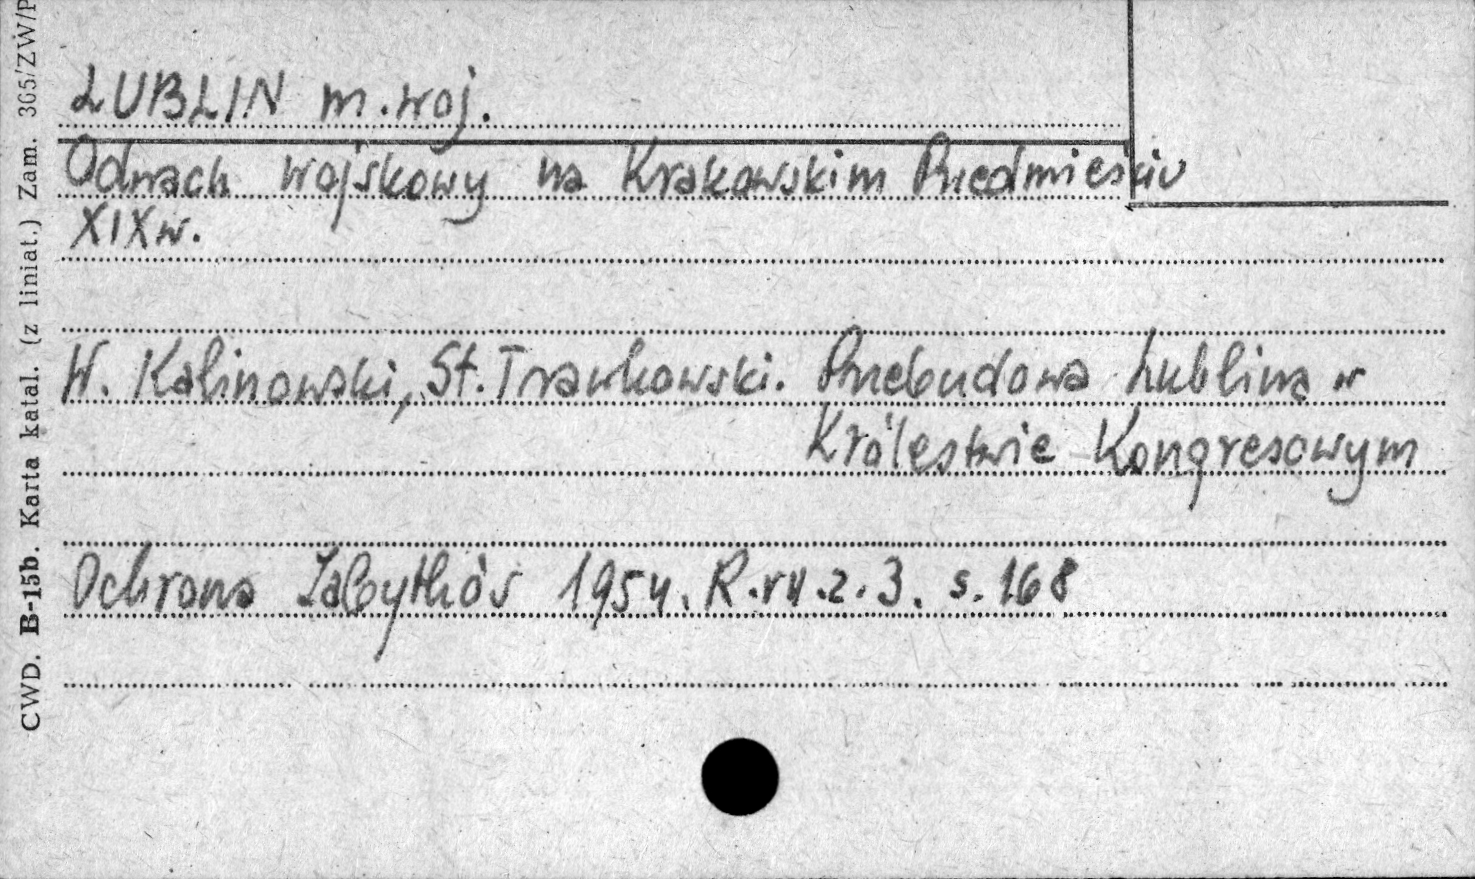 LUBLIN m.woj.
Odwach wojskowy na Krakowskim Przedmieściu
XIX w.
W. Kalinowski, St. Trawkowski. Przebudowa Lublina w
Królestwie Kongresowym
Ochrona Zabytków 1954. R.VII.z.3. s.168
CWD. B-15b. Karta katal. (z liniat.) Zam. 365/ZW/P